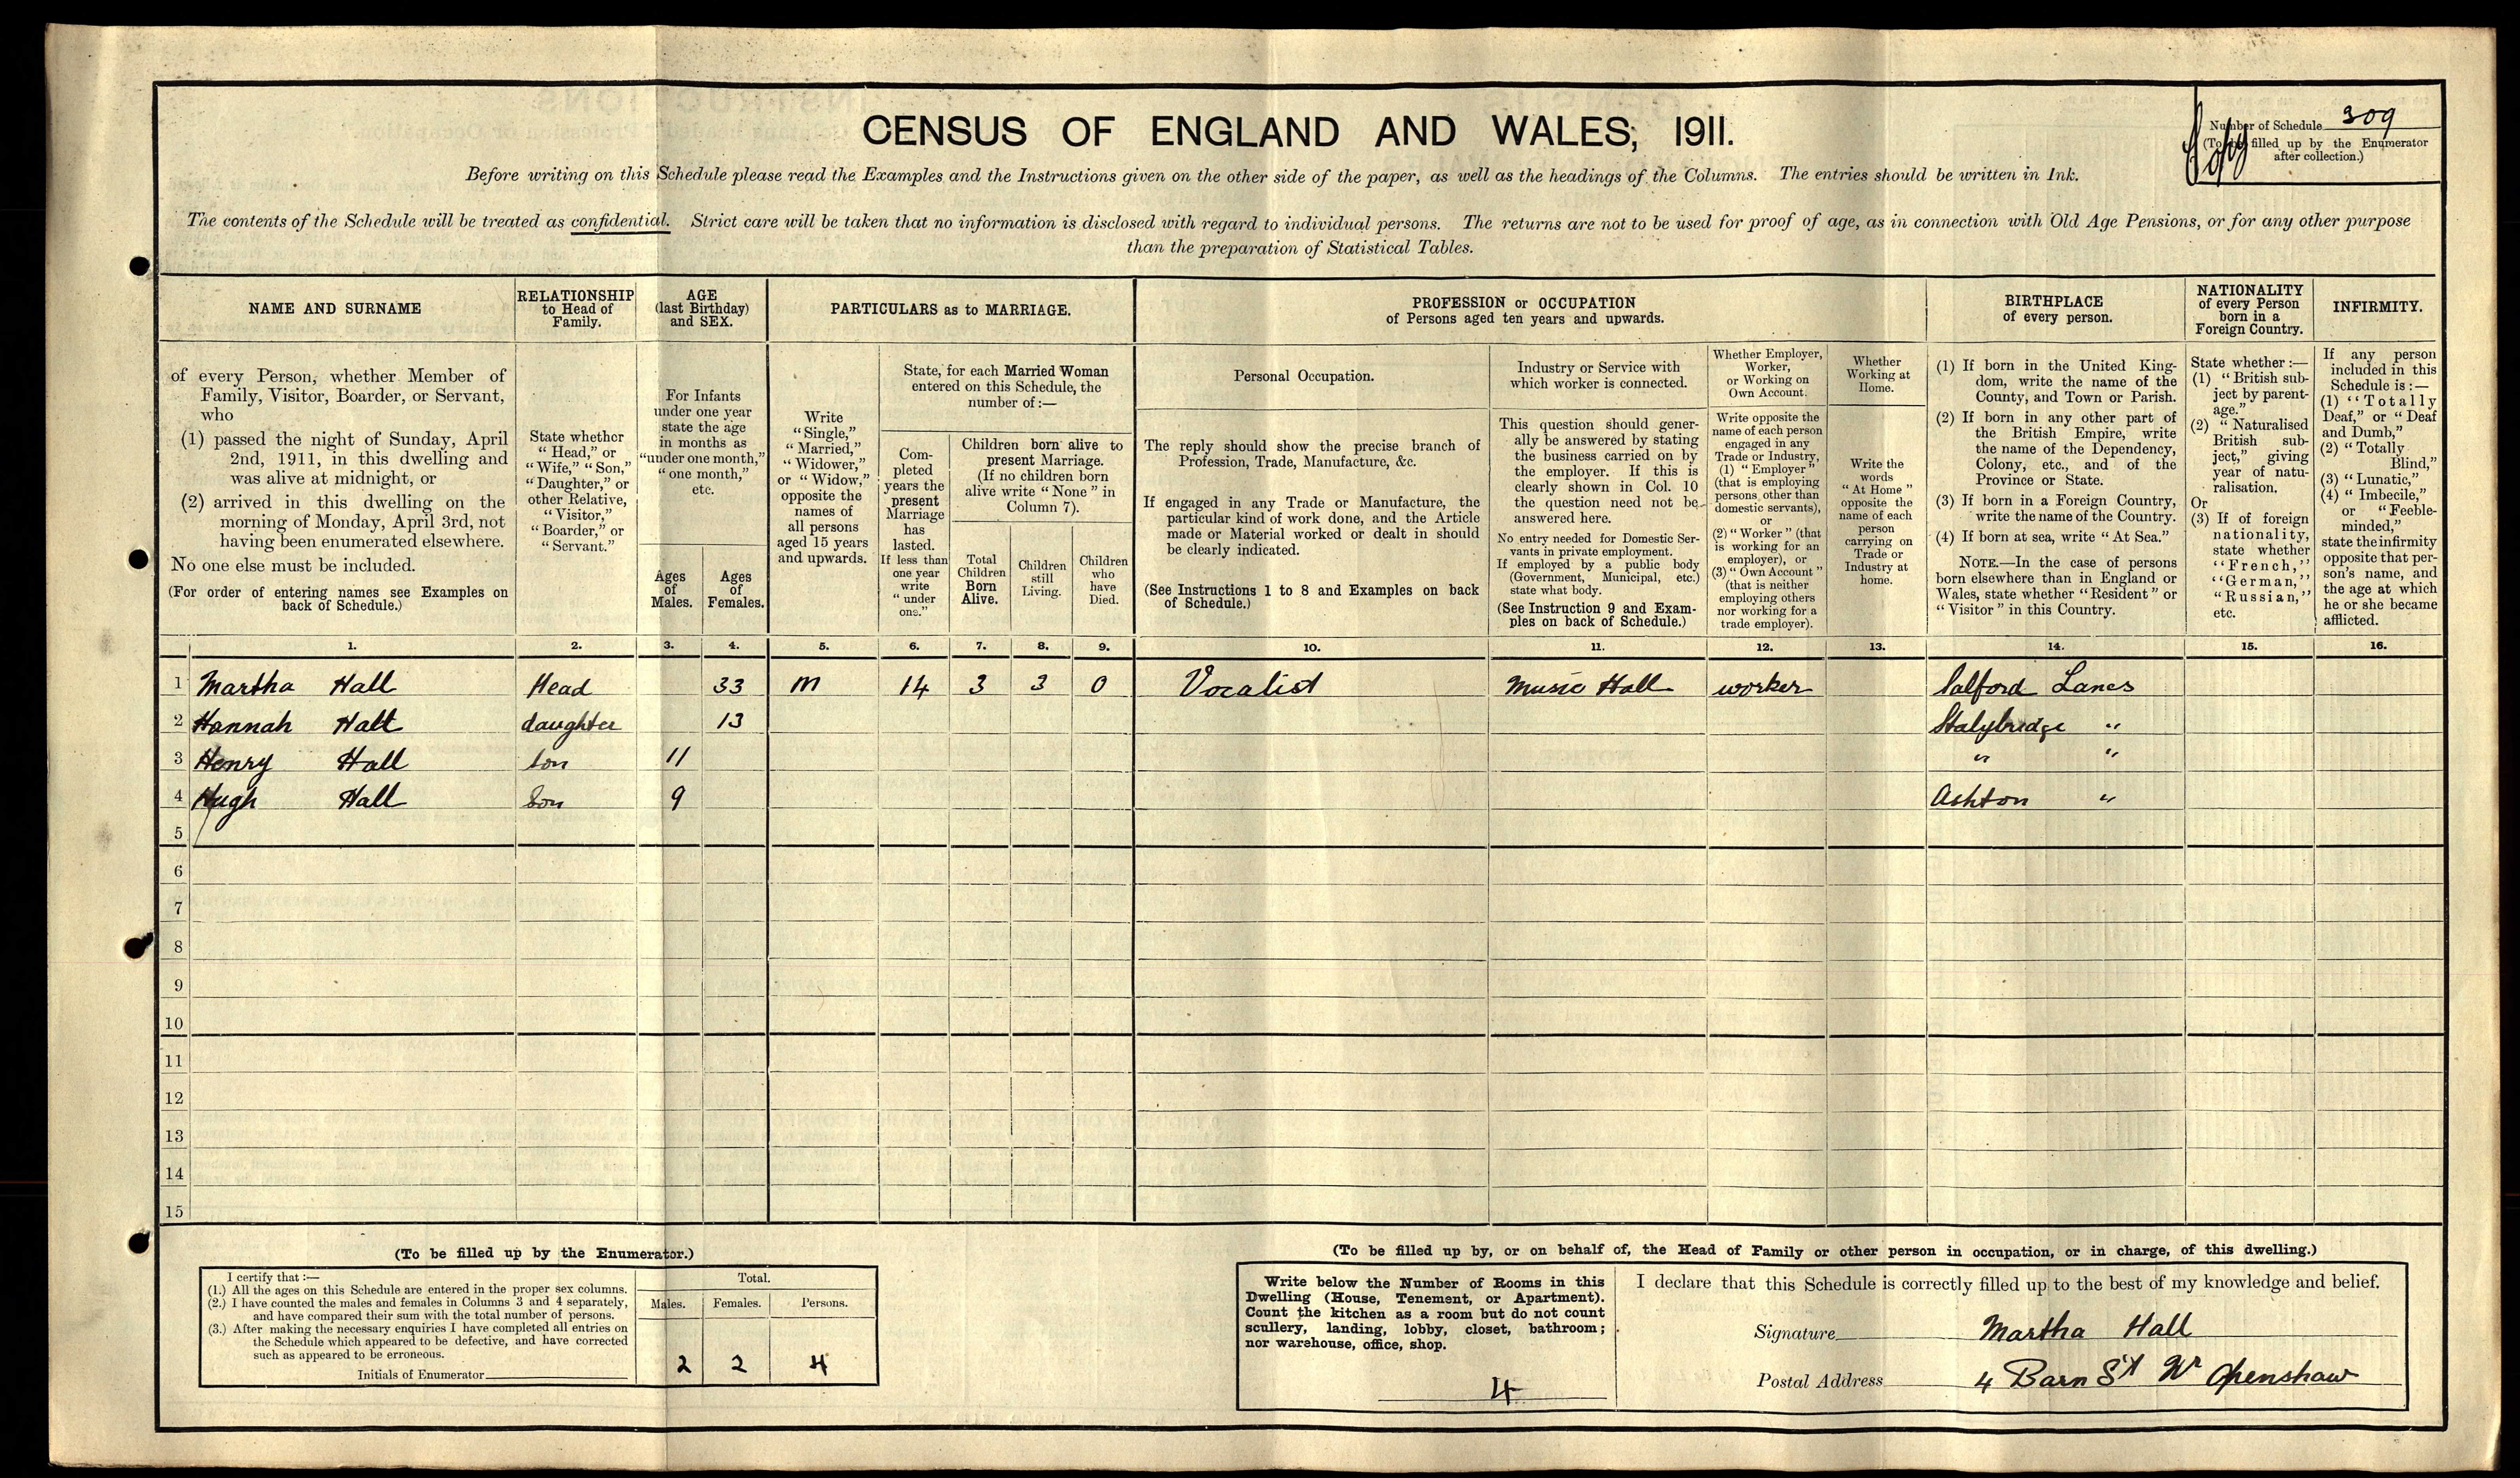 CENSUS OF ENGLAND AND WALES, 1911.
Number of Schedule 309
(To be filled up by the Enumerator
after collection.)
Copy
Before writing on this Schedule please read the Examples and the Instructions given on the other side of the paper, as well as the headings of the Columns. The entries should be written in Ink.
The contents of the Schedule will be treated as confidential. Strict care will be taken that no information is disclosed with regard to individual persons. The returns are not to be used for proof of age, as in connection with Old Age Pensions, or for any other purpose
than the preparation of Statistical Tables.
NAME AND SURNAME
of every Person, whether Member of
Family, Visitor, Boarder, or Servant,
who
(1) passed the night of Sunday, April
2nd, 1911, in this dwelling and
was alive at midnight, or
(2) arrived in this dwelling on the
morning of Monday, April 3rd, not
having been enumerated elsewhere.
No one else must be included.
(For order of entering names see Examples on
back of Schedule.)
RELATIONSHIP
to Head of
Family.
State whether
"Head," or
"Wife," "Son,"
"Daughter," or
other Relative,
"Visitor,"
"Boarder," or
"Servant."
AGE
(last Birthday)
and SEX.
For Infants
under one year
state the age
in months as
"under one month,"
"one month,"
etc.
Ages
of
Males.
Ages
of
Females.
PARTICULARS as to MARRIAGE.
Write
"Single,"
"Married,"
"Widower,"
or "Widow,"
opposite the
names of
all persons
aged 15 years
and upwards.
State, for each Married Woman
entered on this Schedule, the
number of :—
Com-
pleted
years the
present
Marriage
has
lasted.
If less than
one year
write
"under
one."
Children born alive to
present Marriage.
(If no children born
alive write "None" in
Column 7).
Total
Children
Born
Alive.
Children
still
Living.
Children
who
have
Died.
PROFESSION or OCCUPATION
of Persons aged ten years and upwards.
Personal Occupation.
The reply should show the precise branch of
Profession, Trade, Manufacture, &c.
If engaged in any Trade or Manufacture, the
particular kind of work done, and the Article
made or Material worked or dealt in should
be clearly indicated.
(See Instructions 1 to 8 and Examples on back
of Schedule.)
Industry or Service with
which worker is connected.
This question should gener-
ally be answered by stating
the business carried on by
the employer. If this is
clearly shown in Col. 10
the question need not be
answered here.
No entry needed for Domestic Ser-
vants in private employment.
If employed by a public body
(Government, Municipal, etc.)
state what body.
(See Instruction 9 and Exam-
ples on back of Schedule.)
Whether Employer,
Worker,
or Working on
Own Account.
Write opposite the
name of each person
engaged in any
Trade or Industry,
(1) "Employer"
(that is employing
persons other than
domestic servants),
or
(2) "Worker" (that
is working for an
employer), or
(3) "Own Account"
(that is neither
employing others
nor working for a
trade employer).
Whether
Working at
Home.
Write the
words
"At Home"
opposite the
name of each
person
carrying on
Trade or
Industry at
home.
BIRTHPLACE
of every person.
(1) If born in the United King-
dom, write the name of the
County, and Town or Parish.
(2) If born in any other part of
the British Empire, write
the name of the Dependency,
Colony, etc., and of the
Province or State.
(3) If born in a Foreign Country,
write the name of the Country.
(4) If born at sea, write "At Sea."
NOTE.—In the case of persons
born elsewhere than in England or
Wales, state whether "Resident" or
"Visitor" in this Country.
NATIONALITY
of every Person
born in a
Foreign Country.
State whether :—
(1) "British sub-
ject by parent-
age."
(2) "Naturalised
British sub-
ject," giving
year of natu-
ralisation.
Or
(3) If of foreign
nationality,
state whether
"French,"
"German,"
"Russian,"
etc.
INFIRMITY.
If any person
included in this
Schedule is :—
(1) "Totally
Deaf," or "Deaf
and Dumb,"
(2) "Totally
Blind,"
(3) "Lunatic,"
(4) "Imbecile,"
or "Feeble-
minded,"
state the infirmity
opposite that per-
son's name, and
the age at which
he or she became
afflicted.
1. 2. 3. 4. 5. 6. 7. 8. 9. 10. 11. 12. 13. 14. 15. 16.
1 Martha Hall Head 33 M 14 3 3 0 Vocalist Music Hall worker Salford Lancs
2 Hannah Hall daughter 13 Stalybridge "
3 Henry Hall Son 11 " "
4 Hugh Hall Son 9 Ashton "
5
6
7
8
9
10
11
12
13
14
15
(To be filled up by the Enumerator.)
I certify that :—
(1.) All the ages on this Schedule are entered in the proper sex columns.
(2.) I have counted the males and females in Columns 3 and 4 separately,
and have compared their sum with the total number of persons.
(3.) After making the necessary enquiries I have completed all entries on
the Schedule which appeared to be defective, and have corrected
such as appeared to be erroneous.
Initials of Enumerator
Total.
Males. Females. Persons.
2 2 4
(To be filled up by, or on behalf of, the Head of Family or other person in occupation, or in charge, of this dwelling.)
Write below the Number of Rooms in this
Dwelling (House, Tenement, or Apartment).
Count the kitchen as a room but do not count
scullery, landing, lobby, closet, bathroom;
nor warehouse, office, shop.
4
I declare that this Schedule is correctly filled up to the best of my knowledge and belief.
Signature Martha Hall
Postal Address 4 Barn St Hr Openshaw